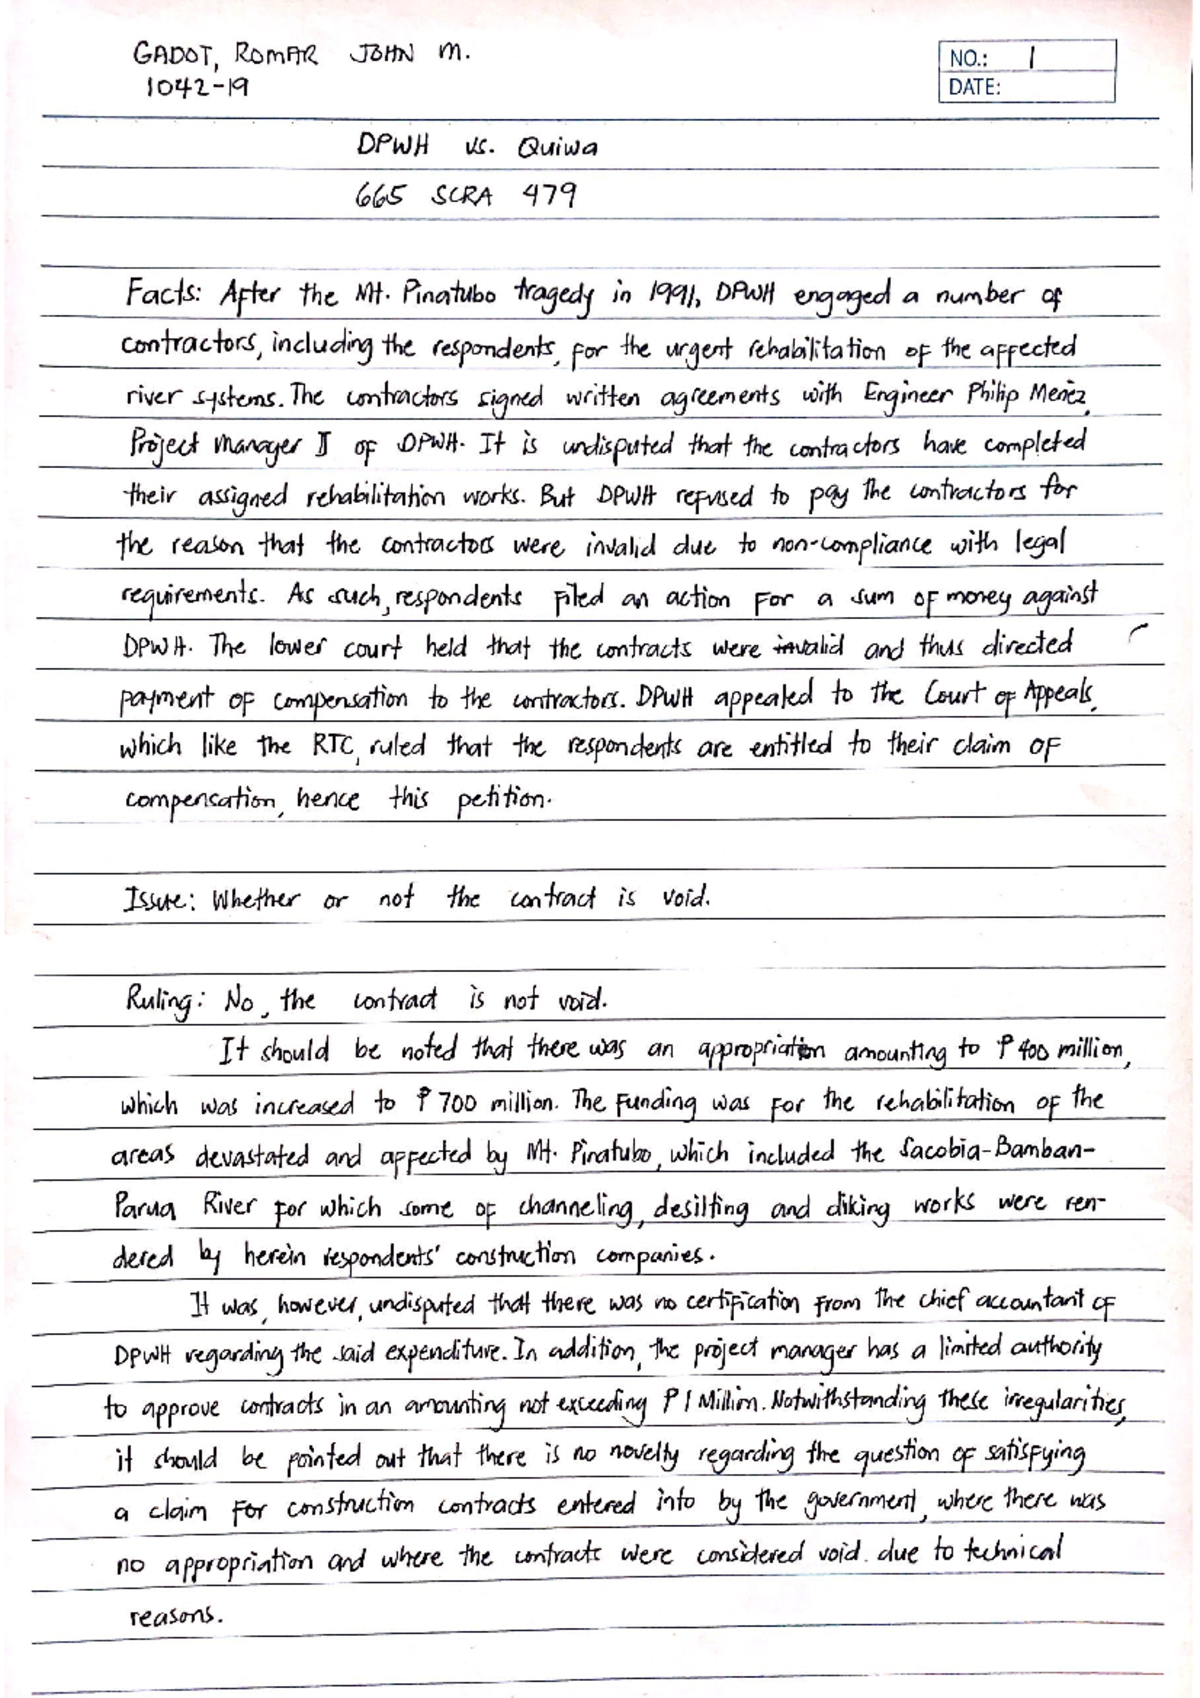 GADOT, ROMAR JOHN M.
1042-19
NO.: 1
DATE:
DPWH vs. Quiwa
665 SCRA 479
Facts: After the Mt. Pinatubo tragedy in 1991, DPWH engaged a number of
contractors, including the respondents, for the urgent rehabilitation of the affected
river systems. The contractors signed written agreements with Engineer Philip Meñez,
Project Manager II of DPWH. It is undisputed that the contractors have completed
their assigned rehabilitation works. But DPWH refused to pay the contractors for
the reason that the contractors were invalid due to non-compliance with legal
requirements. As such, respondents filed an action for a sum of money against
DPWH. The lower court held that the contracts were invalid and thus directed
payment of compensation to the contractors. DPWH appealed to the Court of Appeals,
which like the RTC, ruled that the respondents are entitled to their claim of
compensation, hence this petition.
Issue: Whether or not the contract is void.
Ruling: No, the contract is not void.
It should be noted that there was an appropriation amounting to ₱400 million,
which was increased to ₱700 million. The funding was for the rehabilitation of the
areas devastated and affected by Mt. Pinatubo, which included the Sacobia-Bamban-
Parua River for which some of channeling, desilting and diking works were ren-
dered by herein respondents' construction companies.
It was, however, undisputed that there was no certification from the chief accountant of
DPWH regarding the said expenditure. In addition, the project manager has a limited authority
to approve contracts in an amounting not exceeding ₱1 Million. Notwithstanding these irregularities,
it should be pointed out that there is no novelty regarding the question of satisfying
a claim for construction contracts entered into by the government, where there was
no appropriation and where the contracts were considered void due to technical
reasons.